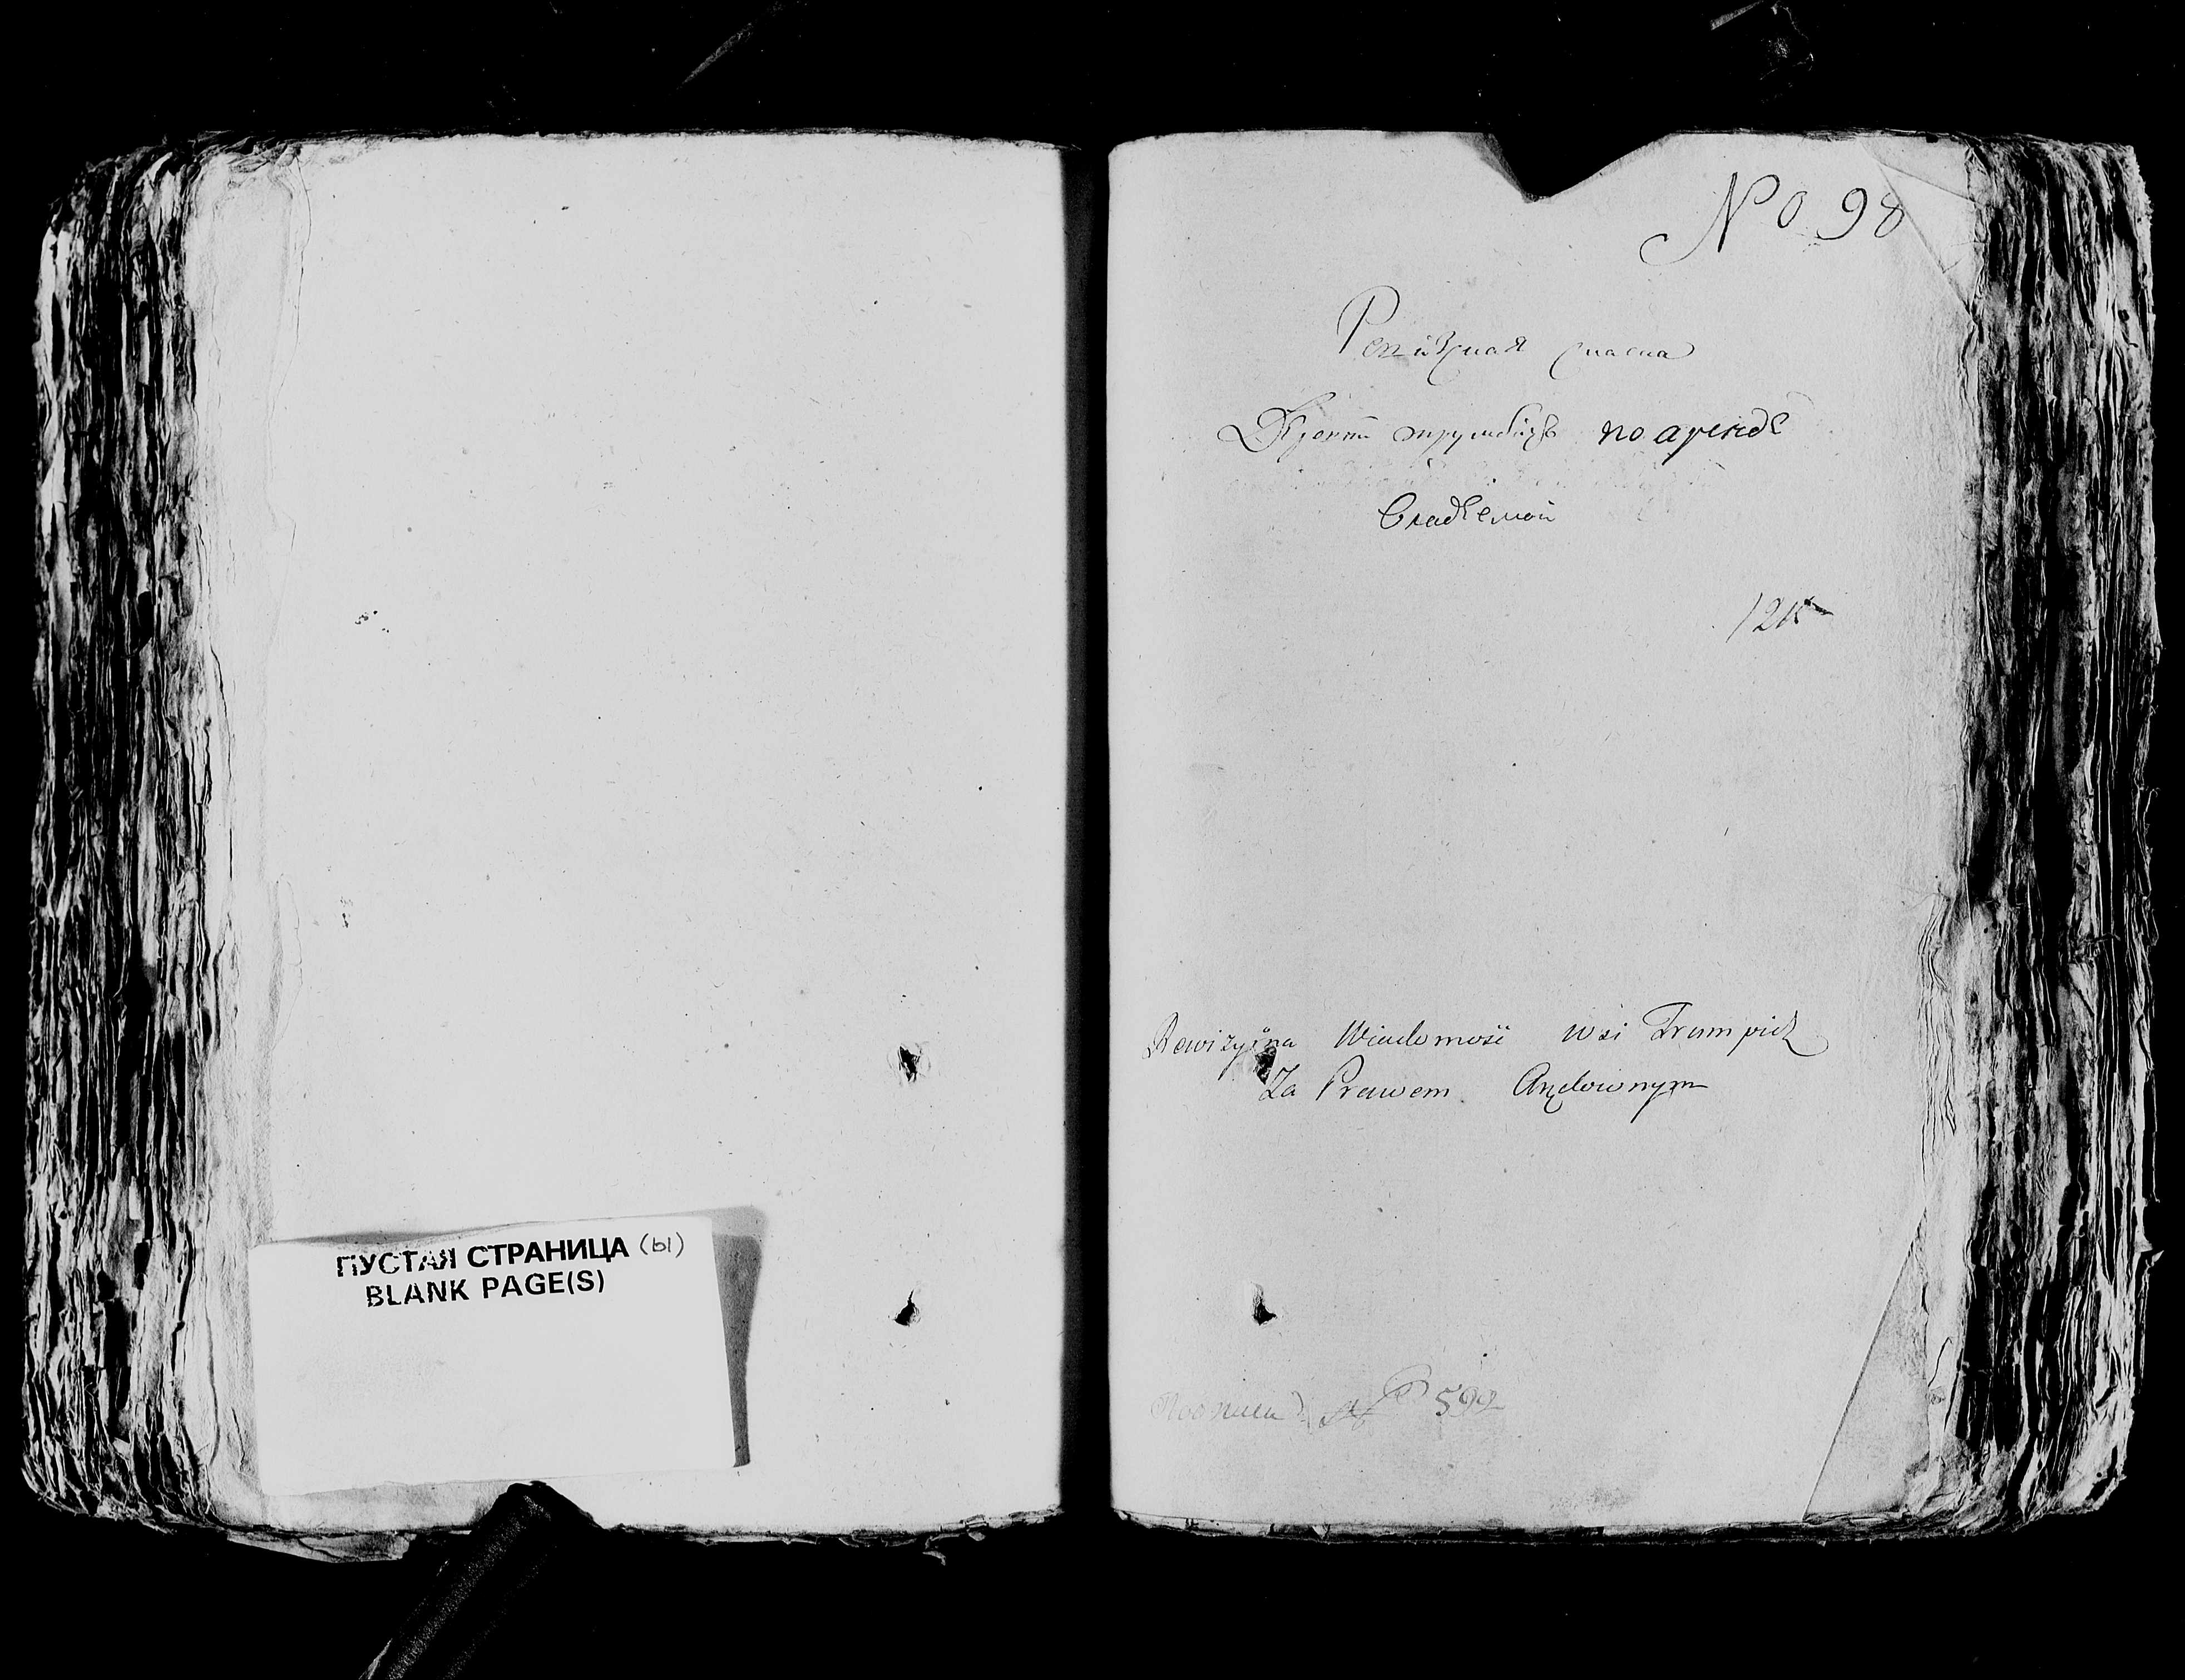 ПУСТАЯ СТРАНИЦА (ы)
BLANK PAGE(S)
No 98
Ревизкая скаска
по аренде
Владѣемой
Rewizyina Wiadomość Wsi Trumpick
Za Prawem Arędownym
№ 592